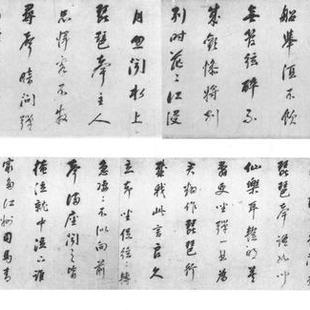 船舉酒飲
無管弦醉不
成歡慘將別
別時茫々江浸
月忽聞水上
琵琶聲主人
忘歸客不發
尋聲暗問彈
琵琶語如聽
仙樂耳暫明莫
辭更坐彈一曲為
君翻作琵琶行
感我此言良久
立卻坐促弦々轉
急凄々不似向前
聲滿座聞之皆
掩泣就中泣下誰
最多江州司馬青